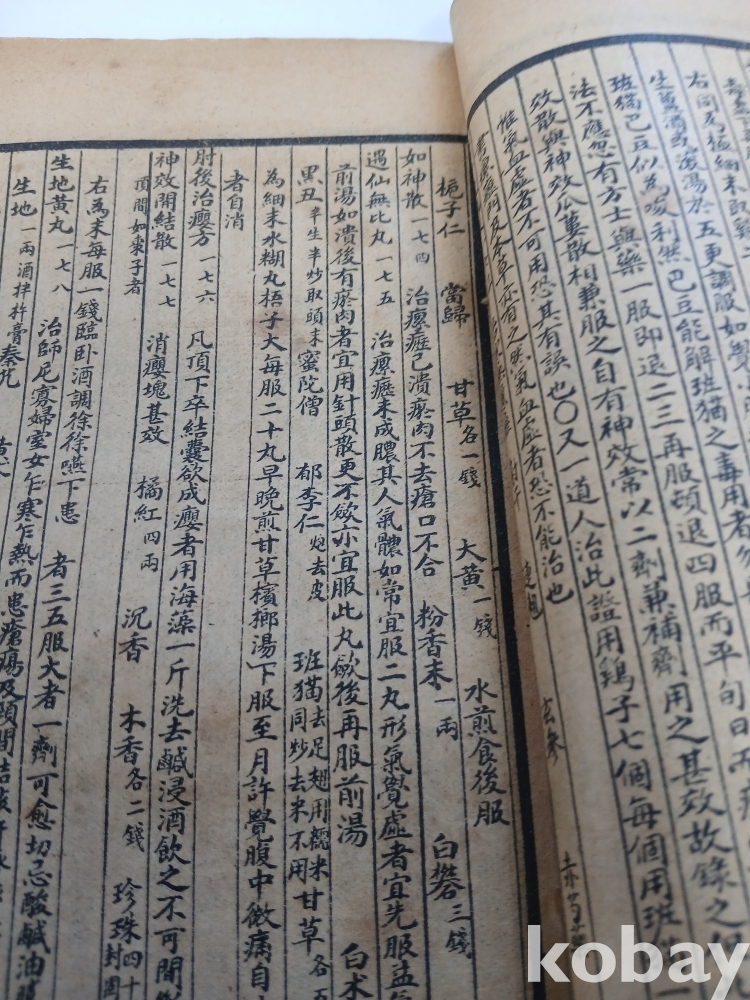 右同為極細末取雞
生薑酒或濃湯於五更調服如覺
班猫巴豆似為峻利然巴豆能解班猫之毒用者勿
法不應忽有方士與藥一服即退二三再服頓退四服而平旬日而
效散與神效瓜蔞散相兼服之自有神效常以二劑兼補劑用之甚效故錄之
惟氣血虛者不可用恐其有誤也○又一道人治此證用鷄子七個每個用班
氣血虛者恐不能治也
玄參
梔子仁 當歸 甘草各一錢 大黃一錢 水煎食後服
如神散一七四 治瘰癧已潰瘀肉不去瘡口不合 粉香末一兩 白礬三錢
遇仙無比丸一七五 治瘰癧未成膿其人氣體如常宜服二丸形氣覺虛者宜先服益氣
前湯如潰後有瘀肉者宜用針頭散更不斂亦宜服此丸斂後再服前湯 白术
黑丑半生半炒取頭末 蜜陀僧 郁李仁炮去皮 班猫去足翅用糯米同炒去米不用 甘草各五
為細末水糊丸梧子大每服二十丸早晚煎甘草檳榔湯下服至月許覺腹中微痛自
者自消
肘後治癭方一七六 凡項下卒結囊欲成癭者用海藻一斤洗去鹹浸酒飲之不可間
神效開結散一七七 消癭塊甚效 橘紅四兩 沉香 木香各二錢 珍珠四十
項間如棗子者
右為末每服一錢臨卧酒調徐徐嚥下患 者三五服大者一劑可愈切忌酸鹹油
生地黃丸一七八 治師尼寡婦室女乍寒乍熱而患瘡瘍及頸間結核
生地一兩酒拌杵膏 秦艽
kobay